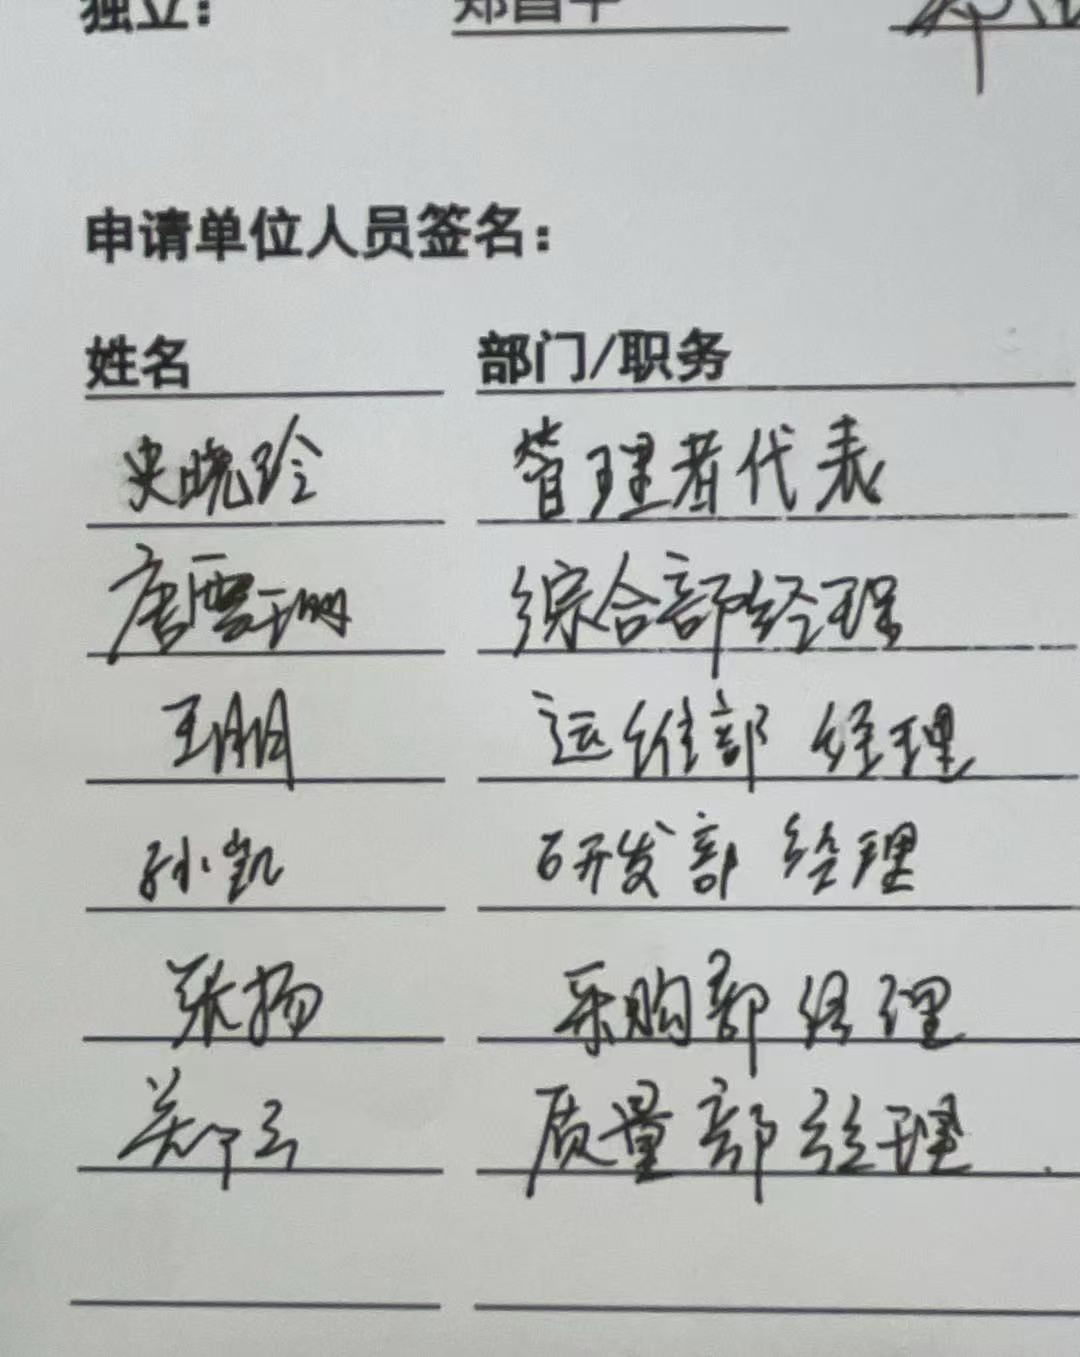 独立： 郑昌平
申请单位人员签名：
姓名 部门/职务
史晓玲 管理者代表
唐雪珊 综合部经理
王朋 运维部 经理
孙凯 研发部 经理
张扬 采购部 经理
郑云 质量部经理